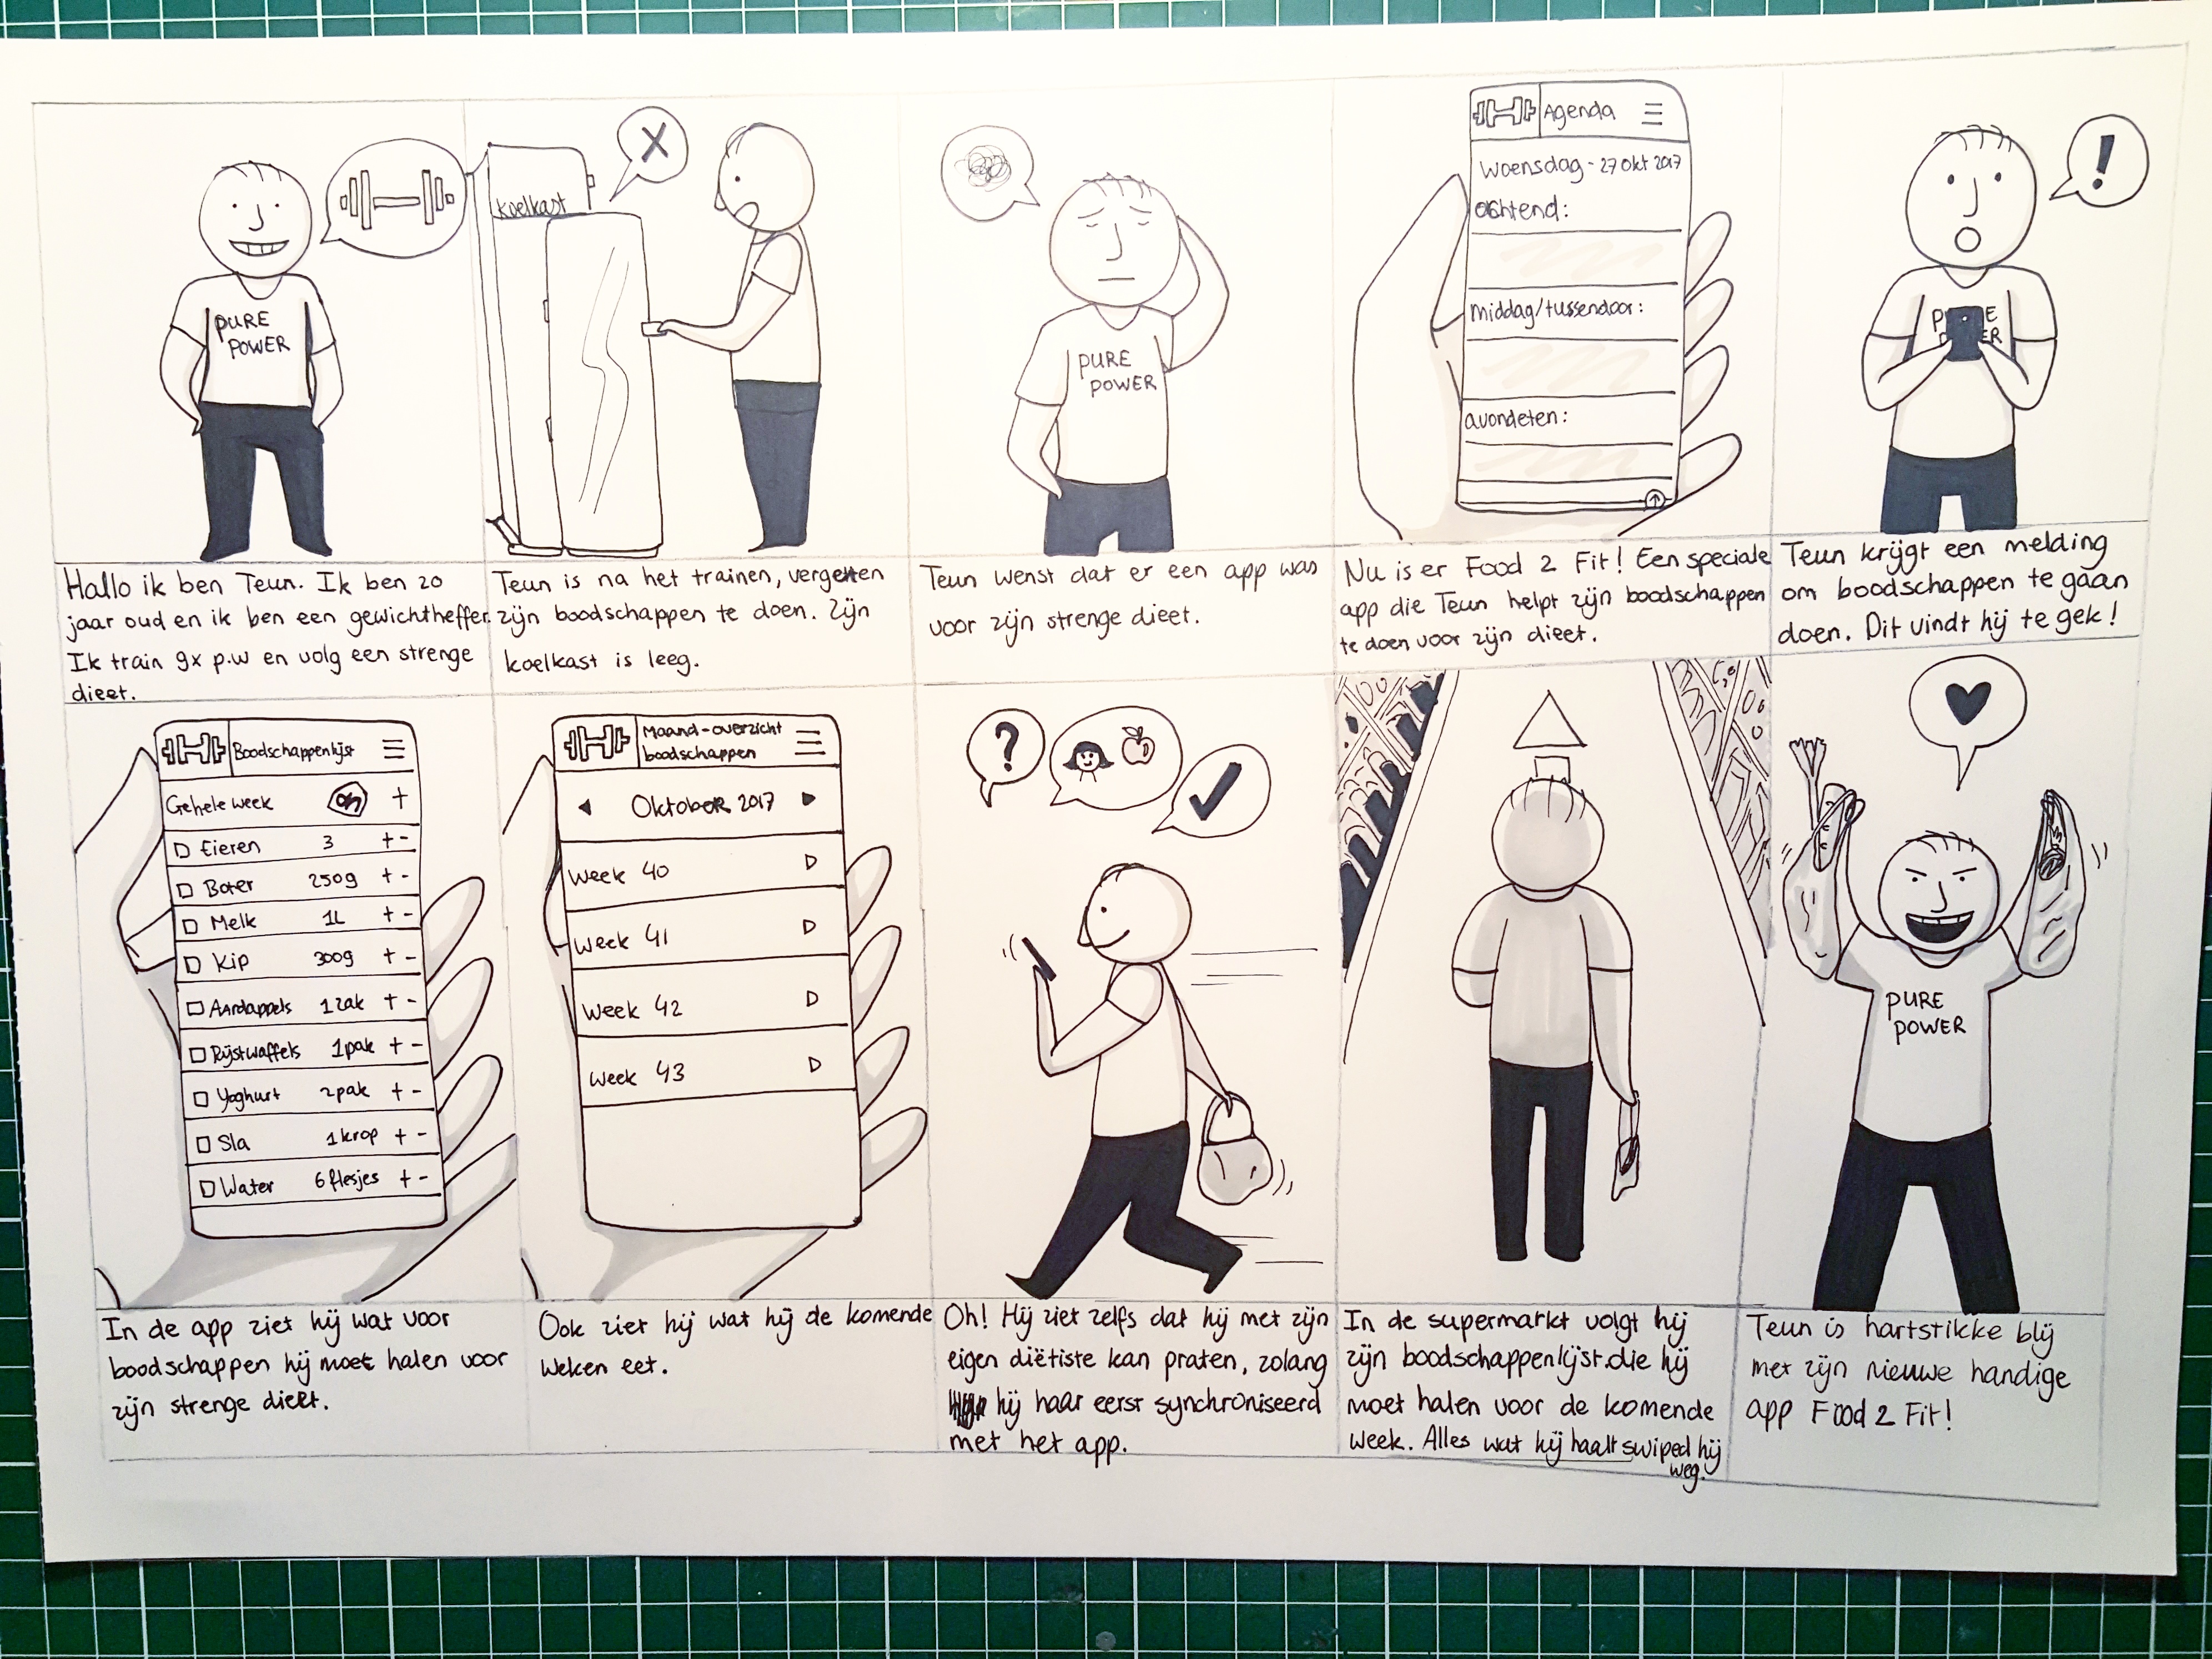 PURE
POWER
Hallo ik ben Teun. Ik ben 20
jaar oud en ik ben een gewichtheffer.
Ik train 9x p.w en volg een strenge
dieet.
koelkast
X
Teun is na het trainen, vergeten
zijn boodschappen te doen. Zijn
koelkast is leeg.
PURE
POWER
Teun wenst dat er een app was
voor zijn strenge dieet.
Agenda
Woensdag - 27 okt 2017
ochtend:
middag/tussendoor:
avondeten:
Nu is er Food 2 Fit! Een speciale
app die Teun helpt zijn boodschappen
te doen voor zijn dieet.
!
Teun krijgt een melding
om boodschappen te gaan
doen. Dit vindt hij te gek!
Boodschappenlijst
Gehele week +
Eieren 3 + -
Boter 250g + -
Melk 1L + -
Kip 300g + -
Aardappels 1 zak + -
Rijstwaffels 1 pak + -
Yoghurt 2 pak + -
Sla 1 krop + -
Water 6 flesjes + -
In de app ziet hij wat voor
boodschappen hij moet halen voor
zijn strenge dieet.
Maand-overzicht
boodschappen
Oktober 2017
Week 40
Week 41
Week 42
Week 43
Ook ziet hij wat hij de komende
weken eet.
?
Oh! Hij ziet zelfs dat hij met zijn
eigen diëtiste kan praten, zolang
hij haar eerst synchroniseerd
met het app.
In de supermarkt volgt hij
zijn boodschappenlijst.die hij
moet halen voor de komende
week. Alles wat hij haalt swiped hij
weg.
PURE
POWER
Teun is hartstikke blij
met zijn nieuwe handige
app Food 2 Fit!